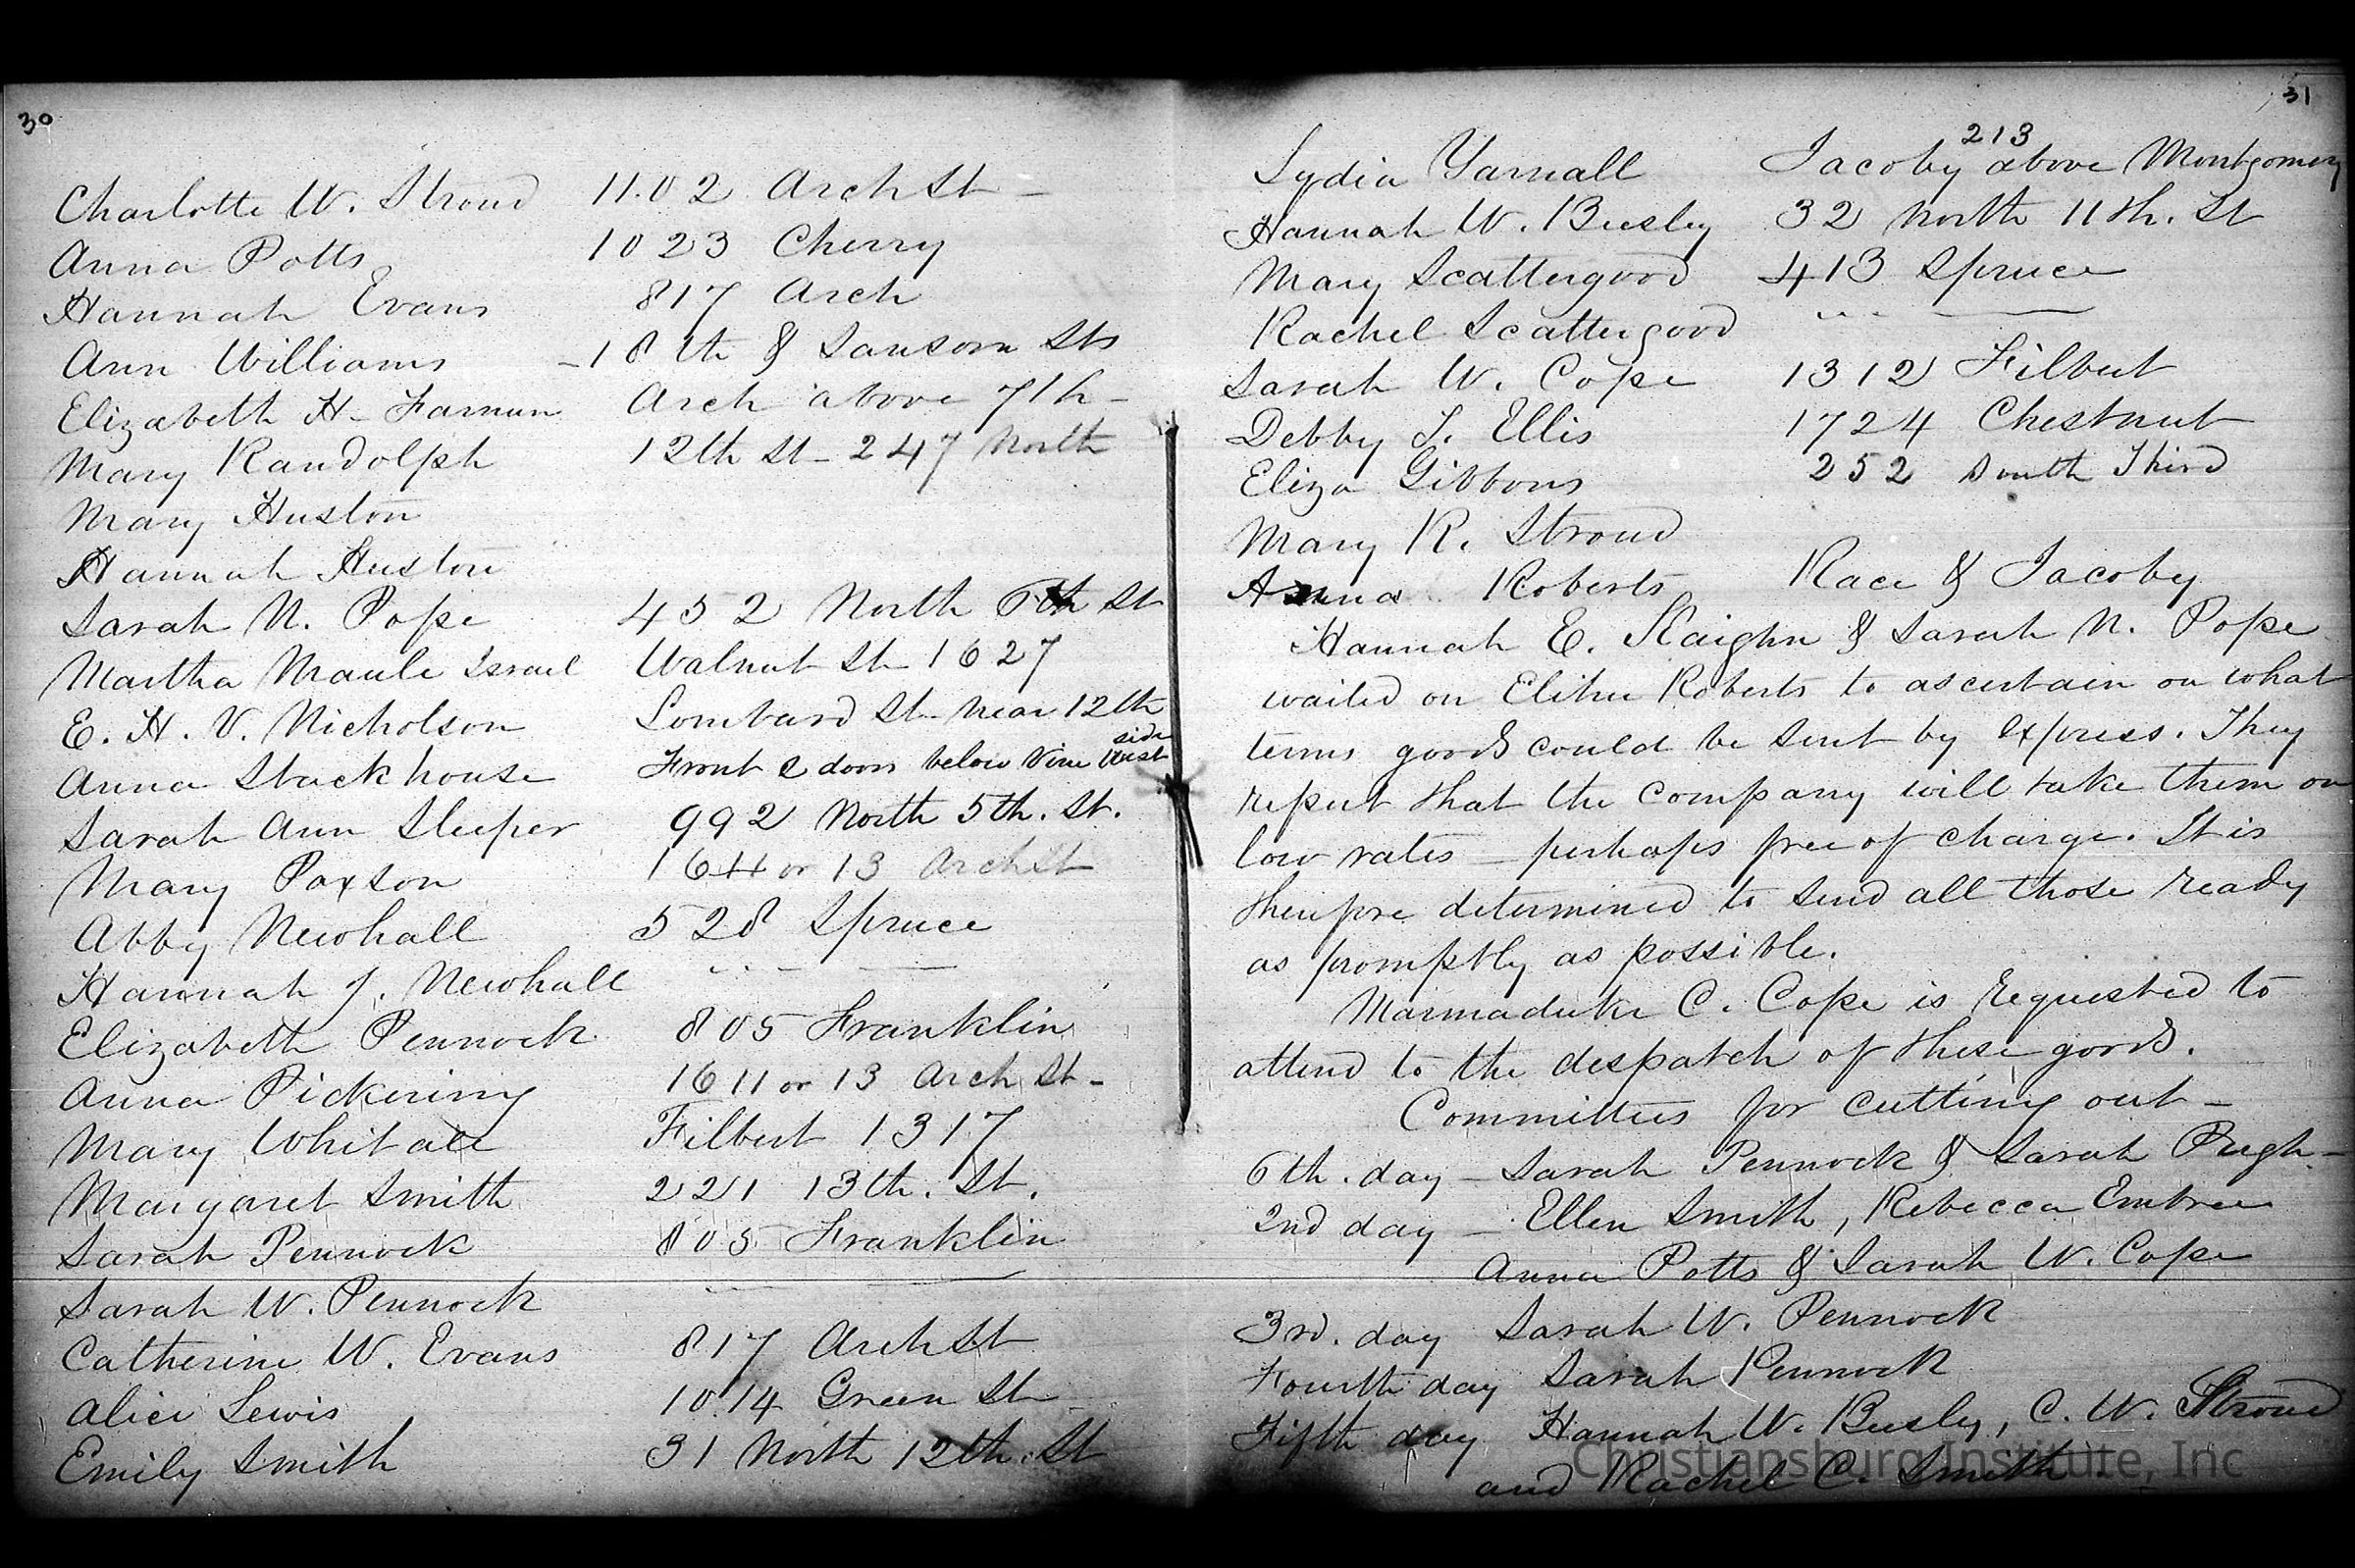 30
Charlotte W. Stroud 1102 Arch St
Anna Potts 1023 Cherry
Hannah Evans 817 Arch
Ann Williams 18th & Sansom Sts
Elizabeth H. Farnum Arch above 7th
Mary Randolph 12th St 247 North
Mary Huston
Hannah Huston
Sarah N. Pope 452 North 6th St
Martha Maule Israel Walnut St 1627
E. H. V. Nicholson Lombard St near 12th
Anna Stackhouse Front 2 doors below Vine West side
Sarah Ann Sleeper 992 North 5th. St.
Mary Paxson 1611 or 13 Arch St
Abby Newhall 528 Spruce
Hannah J. Newhall " —
Elizabeth Pennock 805 Franklin
Anna Pickering 1611 or 13 Arch St
Mary Whitall Filbert 1317
Margaret Smith 221 13th. St.
Sarah Pennock 805 Franklin
Sarah W. Pennock " —
Catherine W. Evans 817 Arch St
Alice Lewis 1014 Green St
Emily Smith 31 North 12th. St
31
Lydia Yarnall 213 Jacoby above Montgomery
Hannah W. Beesley 32 North 11th. St
Mary Scattergood 413 Spruce
Rachel Scattergood " —
Sarah W. Cope 1312 Filbert
Debby S. Ellis 1724 Chestnut
Eliza Gibbons 252 South Third
Mary R. Stroud
Anna Roberts Race & Jacoby
Hannah E. Kaighn & Sarah N. Pope
waited on Elihu Roberts to ascertain on what
terms goods could be sent by express. They
report that the company will take them on
low rates — perhaps free of charge. It is
therefore determined to send all those ready
as promptly as possible.
Marmaduke C. Cope is requested to
attend to the despatch of these goods.
Committees for cutting out —
6th. day — Sarah Pennock & Sarah Pugh —
2nd day — Ellen Smith, Rebecca Embree
Anna Potts & Sarah W. Cope
3rd. day Sarah W. Pennock
Fourth day Sarah Pennock
Fifth day Hannah W. Beesley, C. W. Stroud
and Rachel C. Smith.
Christiansburg Institute, Inc